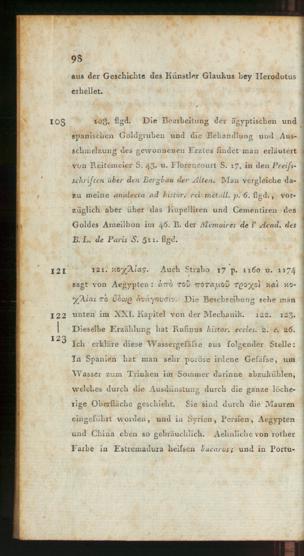 98
aus der Geschichte des Künstler Glaukus bey Herodotus
erhellet.
103 103. flgd. Die Bearbeitung der ägyptischen und
spanischen Goldgruben und die Behandlung und Aus-
schmelzung des gewonnenen Erztes findet man erläutert
von Reitemeier S. 43. u. Florencourt S. 17, in den Preifs-
schriften über den Bergbau der Alten. Man vergleiche da-
zu meine analecta ad histor. rei metall. p. 6. flgd., vor-
züglich aber über das Kupelliren und Cementiren des
Goldes Ameilhon im 46. B. der Memoires de l' Acad. des
B. L. de Paris S. 511. flgd.
121 121. κοχλίας. Auch Strabo 17 p. 1160 u. 1174
sagt von Aegypten: ἀπὸ τοῦ ποταμοῦ τροχοὶ καὶ κο-
χλίαι τὸ ὕδωρ ἀνάγουσιν. Die Beschreibung sehe man
122 unten im XXI. Kapitel von der Mechanik. 122. 123.
| Dieselbe Erzählung hat Rufinus histor. eccles. 2. c. 26.
123 Ich erkläre diese Wassergefäfse aus folgender Stelle:
In Spanien hat man sehr poröse irdene Gefäfse, um
Wasser zum Trinken im Sommer darinne abzukühlen,
welches durch die Ausdünstung durch die ganze löche-
rige Oberfläche geschieht. Sie sind durch die Mauren
eingeführt worden, und in Syrien, Persien, Aegypten
und China eben so gebräuchlich. Aehnliche von rother
Farbe in Estremadura heifsen bucaros; und in Portu-